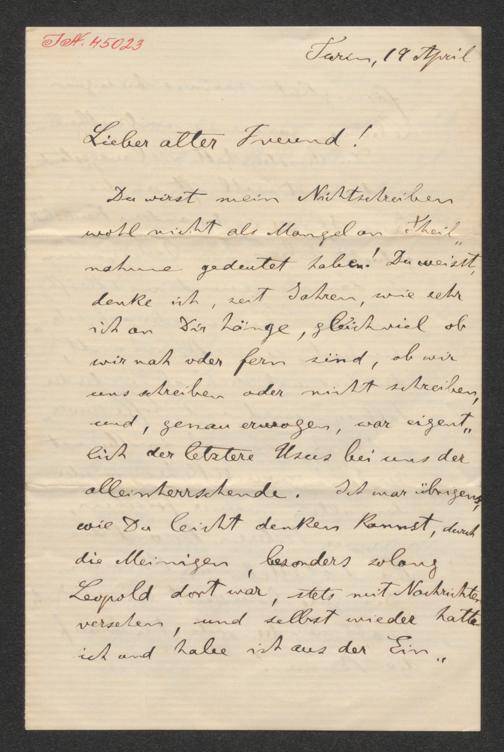 I.N. 45023
Turin, 19 April
Lieber alter Freund!
Du wirst mein Nichtschreiben
wohl nicht als Mangel an Theil„
nahme gedeutet haben! Du weisst,
denke ich, seit Jahren, wie sehr
ich an Dir hänge, gleichviel ob
wir nah oder fern sind, ob wir
uns schreiben oder nicht schreiben,
und, genau erwogen, war eigent„
lich der letztere Usus bei uns der
alleinherrschende. Ich war übrigens,
wie Du leicht denken kannst, durch
die Meinigen, besonders solang
Leopold dort war, stets mit Nachrichten
versehen, und selbst wieder hatte
ich und habe ich aus der Ein„